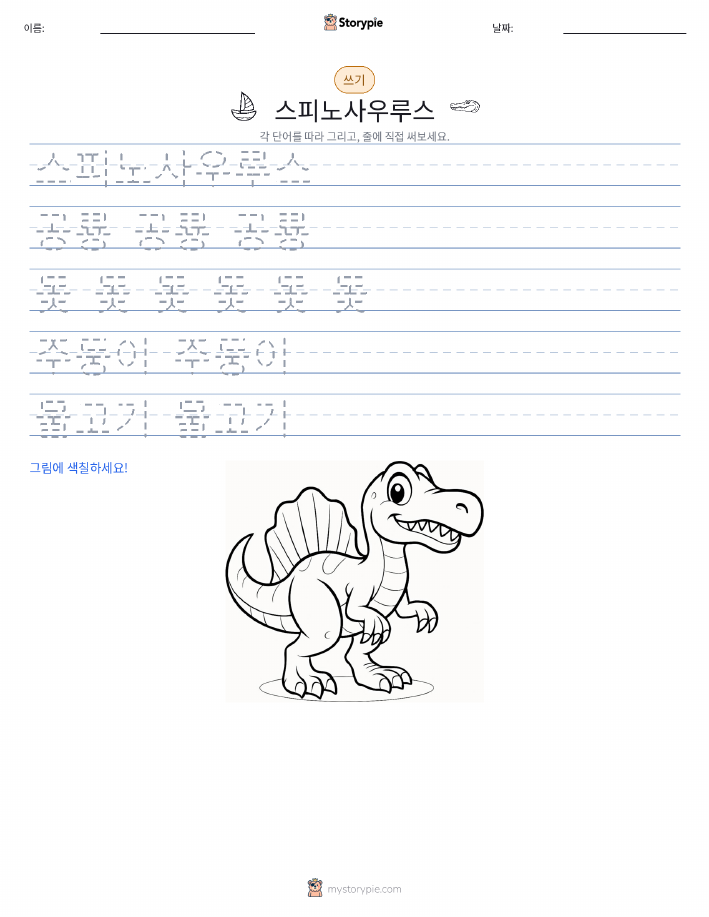 이름:
Storypie
날짜:
쓰기
스피노사우루스
각 단어를 따라 그리고, 줄에 직접 써보세요.
스피노사우루스
공룡 공룡 공룡
돛 돛 돛 돛 돛 돛
주둥이 주둥이
물고기 물고기
그림에 색칠하세요!
mystorypie.com